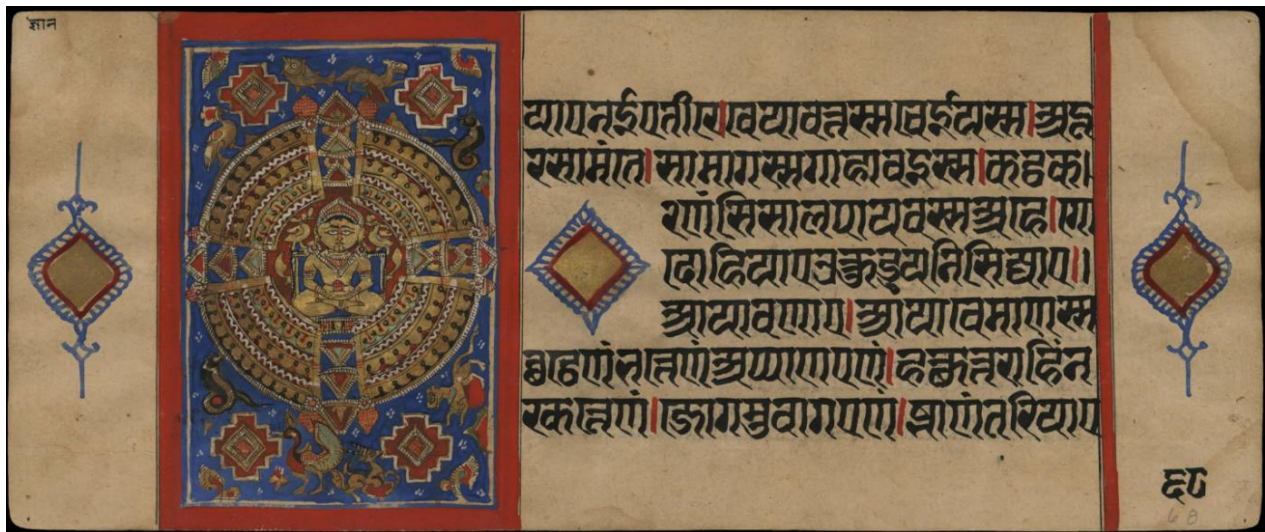 ज्ञान
याएनईएतीरे।वेयावत्तस्सचेईयस्स।अदू
रसामंते।सामागस्सगाहावइस्स।कठक
रणंसिसालपायवस्सअहे।गो
दोहियाएउक्कुडुयनिसिद्याए॥
आयावणाए।आयावेमाणस्स
छठेणंभत्तेणंअप्पाणएणं।हत्थुत्तराहिंन
रकत्तेणं।जोगमुवागएणं।झाणंतरियाए
६८
68